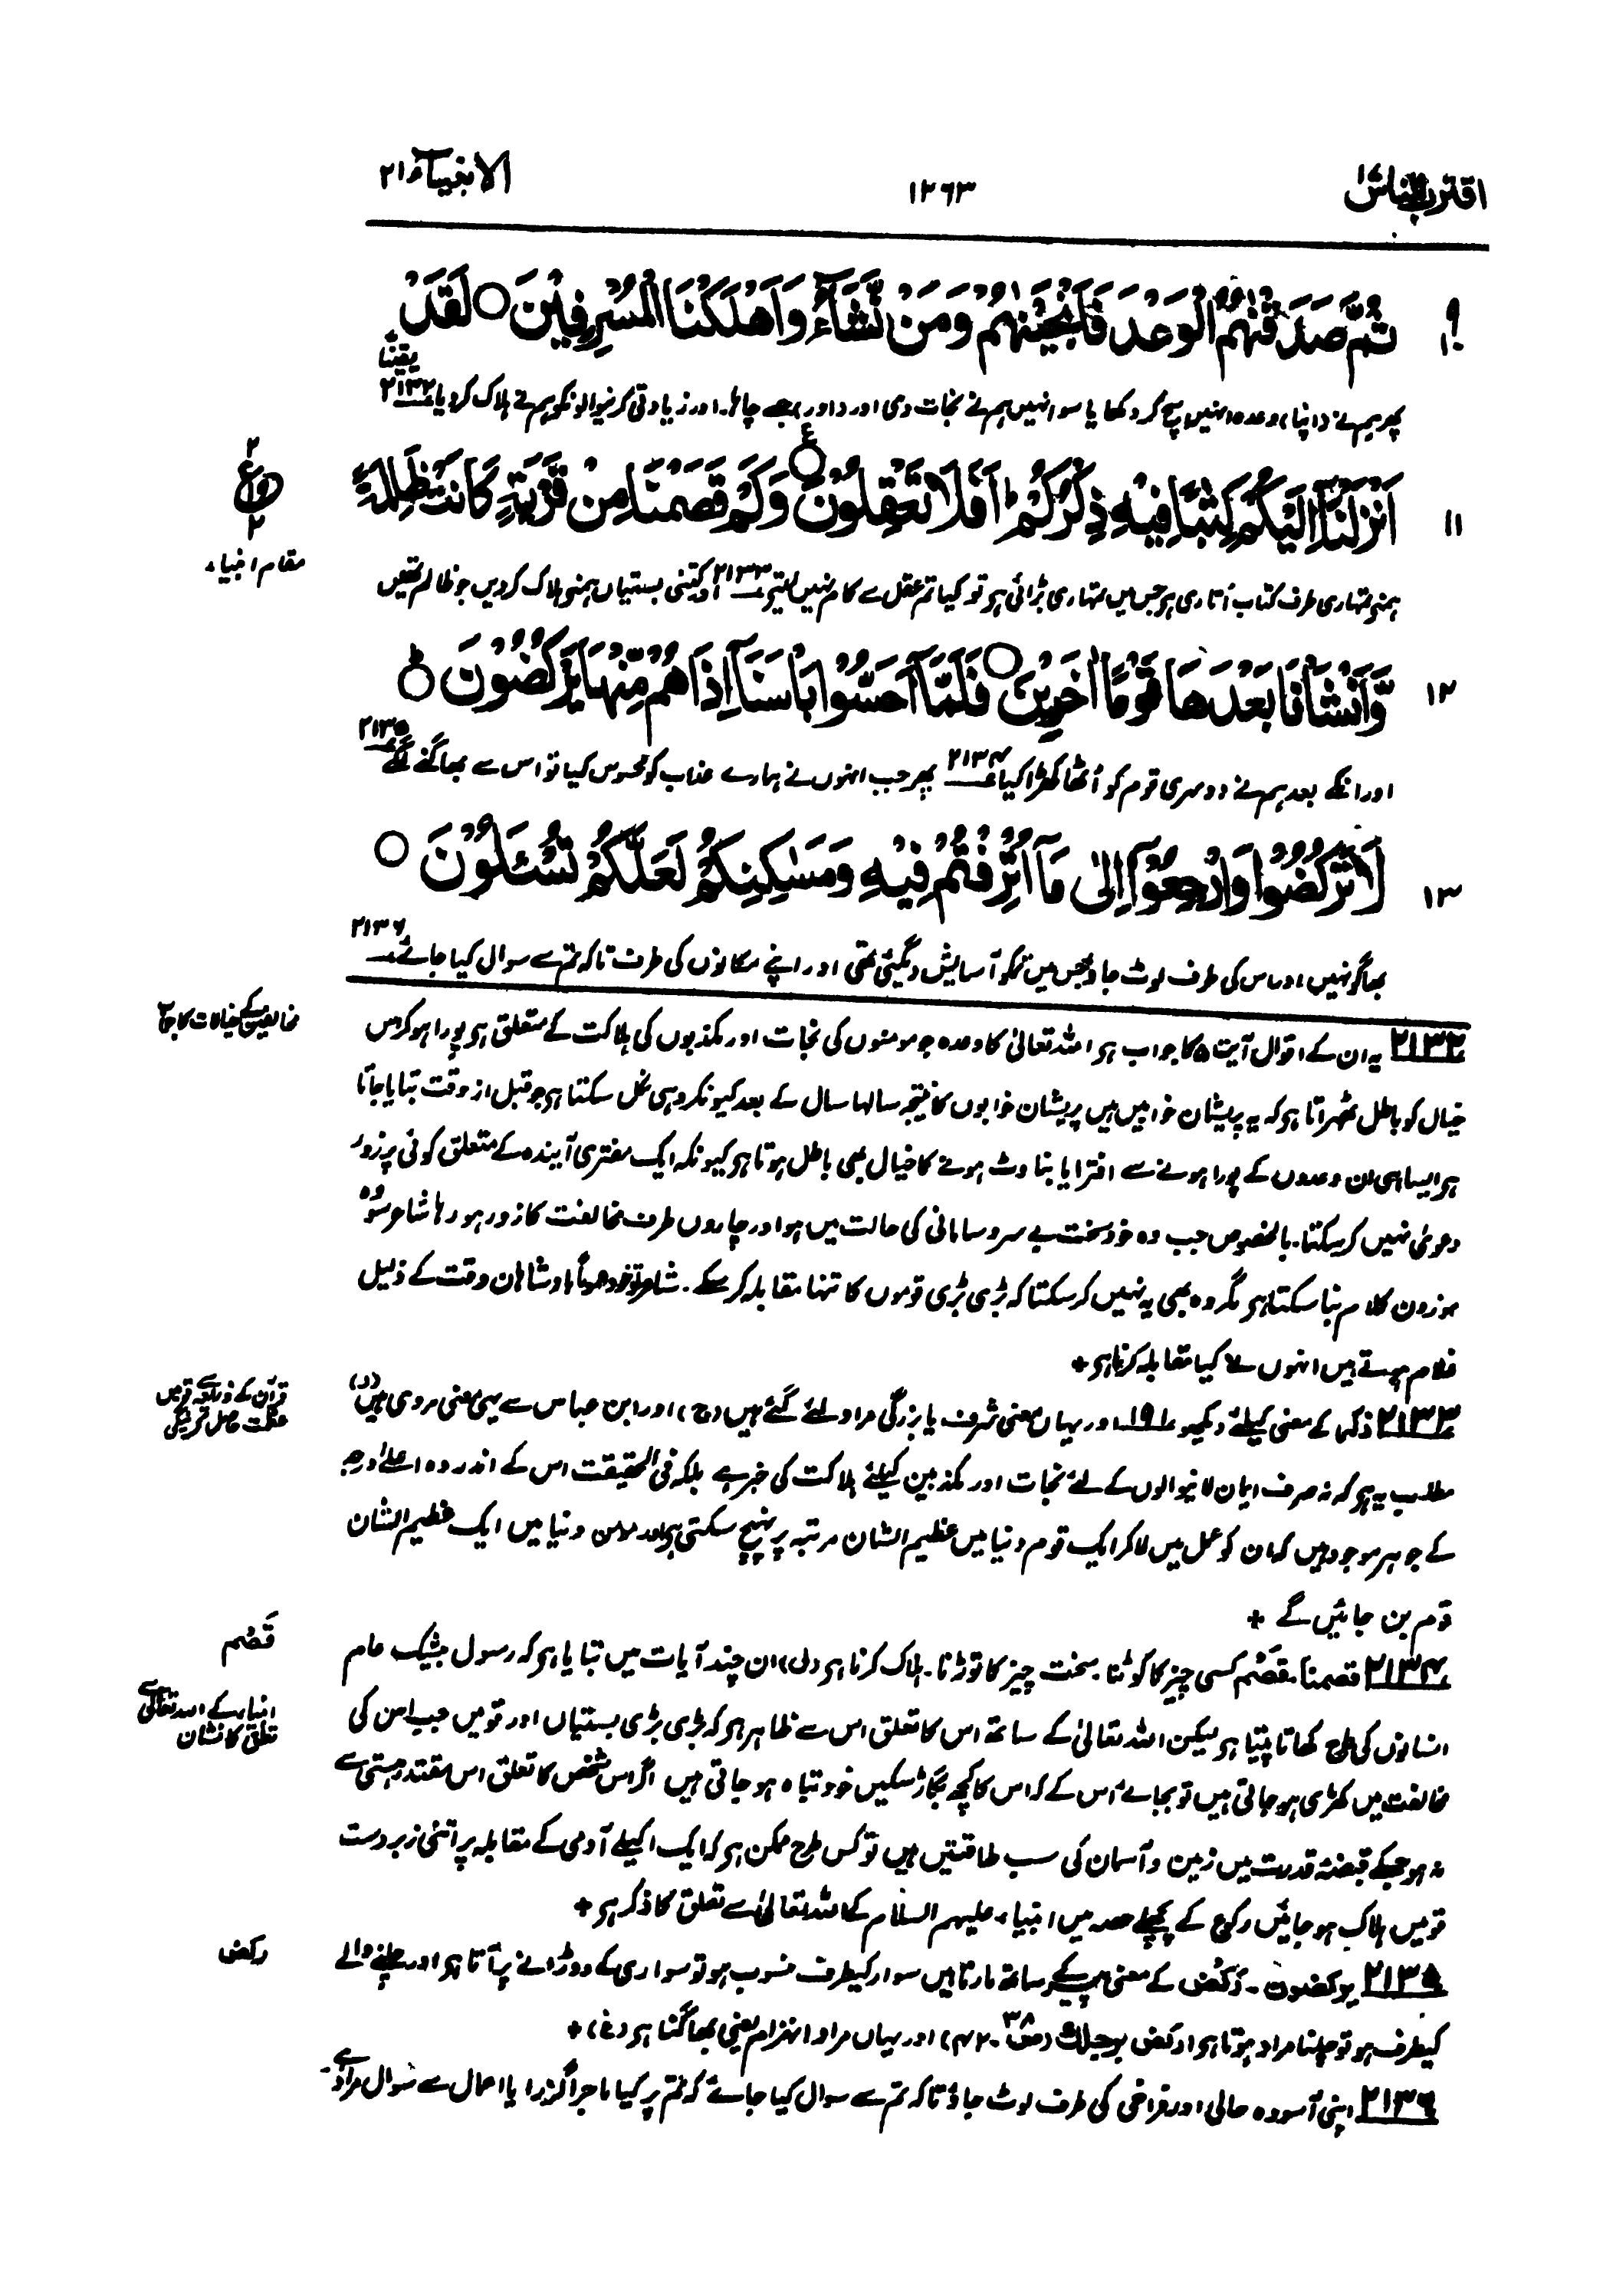 اقترب للناس ۱۷
۱۲۶۳
الانبیآء ۲۱
۹
۱۰
ثُمَّ صَدَقْنٰهُمُ الْوَعْدَ فَاَنْجَيْنٰهُمْ وَمَنْ نَّشَآءُ وَاَهْلَكْنَا الْمُسْرِفِيْنَ ○ لَقَدْ
یقیناً
پھر ہم نے (اپنا) وعدہ انہیں سچ کر دکھایا سو انہیں ہم نے نجات دی اور (اور) جسے چاہا۔ اور زیادتی کرنیوالونکو ہم نے ہلاک کر دیا ۲۱۳۲
۱۱
اَنْزَلْنَآ اِلَيْكُمْ كِتٰبًا فِيْهِ ذِكْرُكُمْ ؕ اَفَلَا تَعْقِلُوْنَ ○ ع وَكَمْ قَصَمْنَا مِنْ قَرْيَةٍ كَانَتْ ظَالِمَةً
۲
ع
۲
مقام انبیاء
ہمنے تمہاری طرف کتاب اُتاری ہے جس میں تمہاری بڑائی ہے تو کیا تم عقل سے کام نہیں لیتے ۲۱۳۳ اور کتنی بستیاں ہمنے ہلاک کر دیں جو ظالم تھیں
۱۲
وَّاَنْشَاْنَا بَعْدَهَا قَوْمًا اٰخَرِيْنَ ○ فَلَمَّآ اَحَسُّوْا بَاْسَنَآ اِذَا هُمْ مِّنْهَا يَرْكُضُوْنَ ○ؕ
اور انکے بعد ہم نے دوسری قوم کو اُٹھا کھڑا کیا ۲۱۳۴ پھر جب انہوں نے ہمارے عذاب کو محسوس کیا تو اس سے بھاگنے لگے ۲۱۳۵
۱۳
لَا تَرْكُضُوْا وَارْجِعُوْٓا اِلٰى مَآ اُتْرِفْتُمْ فِيْهِ وَمَسٰكِنِكُمْ لَعَلَّكُمْ تُسْئَلُوْنَ ○
بھاگو نہیں، اور اس کی طرف لوٹ جاؤ جس میں تمکو آسایش دیگئی تھی اور اپنے مکانوں کی طرف تاکہ تم سے سوال کیا جائے ۲۱۳۶
مخالفین کے خیالات کا جواب
۲۱۳۲ یہ ان کے اقوال آیت ۵ کا جواب ہے اللہ تعالیٰ کا وعدہ جو مومنوں کی نجات اور مکذبوں کی ہلاکت کے متعلق ہے پورا ہو کر اس
خیال کو باطل ٹھہراتا ہے کہ یہ پریشان خوابیں ہیں پریشان خوابوں کا نتیجہ سالہا سال کے بعد کیونکر وہی نکل سکتا ہے جو قبل از وقت بتایا جاتا
ہے ایسا ہی ان وعدوں کے پورا ہونے سے افترا یا بناوٹ ہونے کا خیال بھی باطل ہوتا ہے کیونکہ ایک مفتری آیندہ کے متعلق کوئی پرزور
دعویٰ نہیں کر سکتا۔ بالخصوص جب وہ خود سخت بے سرو سامانی کی حالت میں ہو اور چاروں طرف مخالفت کا زور ہو رہا شاعر سو وہ
موزون کلام بنا سکتا ہے مگر وہ بھی یہ نہیں کر سکتا کہ بڑی بڑی قوموں کا تنہا مقابلہ کر سکے۔ شاعر تو خود عموماً بادشاہان وقت کے ذلیل
غلام ہوتے ہیں انہوں نے کیا مقابلہ کرنا ہے +
قرآن کے ذریعہ قومیں عظمت حاصل کریں گی
۲۱۳۳ ذکر کے معنی کیلئے دیکھو ۱۹۱ اور یہاں معنی شرف یا بزرگی مراد لئے گئے ہیں (ج) اور ابن عباس سے یہی معنی مروی ہیں (ر)
مطلب یہ ہے کہ نہ صرف ایمان لانیوالوں کے لئے نجات اور مکذبین کیلئے ہلاکت کی خبر ہے بلکہ فی الحقیقت اس کے اندر وہ اعلےٰ درجہ
کے جوہر موجود ہیں کہ ان کو عمل میں لا کر ایک قوم دنیا میں عظیم الشان مرتبہ پر پہنچ سکتی ہے اور مومن دنیا میں ایک عظیم الشان
قوم بن جائیں گے +
قَصْم
۲۱۳۴ قصمنا۔ قَصْم کسی چیز کا کوٹنا۔ سخت چیز کا توڑنا۔ ہلاک کرنا ہے (ل) ان چند آیات میں بتایا ہے کہ رسول بیشک عام
انبیاء کے اللہ تعالیٰ سے تعلق کا نشان
انسانوں کی طرح کھاتا پیتا ہے لیکن اللہ تعالیٰ کے ساتھ اس کا تعلق اس سے ظاہر ہے کہ بڑی بڑی بستیاں اور قومیں جب اس کی
مخالفت میں کھڑی ہو جاتی ہیں تو بجائے اس کے کہ اس کا کچھ بگاڑ سکیں خود تباہ ہو جاتی ہیں اگر اس شخص کا تعلق اس مقتدر ہستی سے
نہ ہو جسکے قبضۂ قدرت میں زمین و آسمان کی سب طاقتیں ہیں تو کس طرح ممکن ہے کہ ایک اکیلے آدمی کے مقابلہ پر اتنی زبردست
قومیں ہلاک ہو جائیں رکوع کے پچھلے حصہ میں انبیاء علیہم السلام کے اللہ تعالیٰ سے تعلق کا ذکر ہے +
رکض
۲۱۳۵ یرکضون۔ رَکْض کے معنی پیر کے ساتھ مارنا ہیں سوار کیطرف منسوب ہو تو سواری کے دوڑانے پر آتا ہے اور چلنے والے
کیطرف ہو تو چلنا مراد ہوتا ہے ارکض برجلك (صٓ ۳۸۔ ۴۲) اور یہاں مراد انہزام یعنی بھاگنا ہے (غ) +
۲۱۳۶ اپنی آسودہ حالی اور فراخی کی طرف لوٹ جاؤ تاکہ تم سے سوال کیا جائے کہ تم پر کیا ماجرا گزرا یا اعمال سے سوال مراد ہے